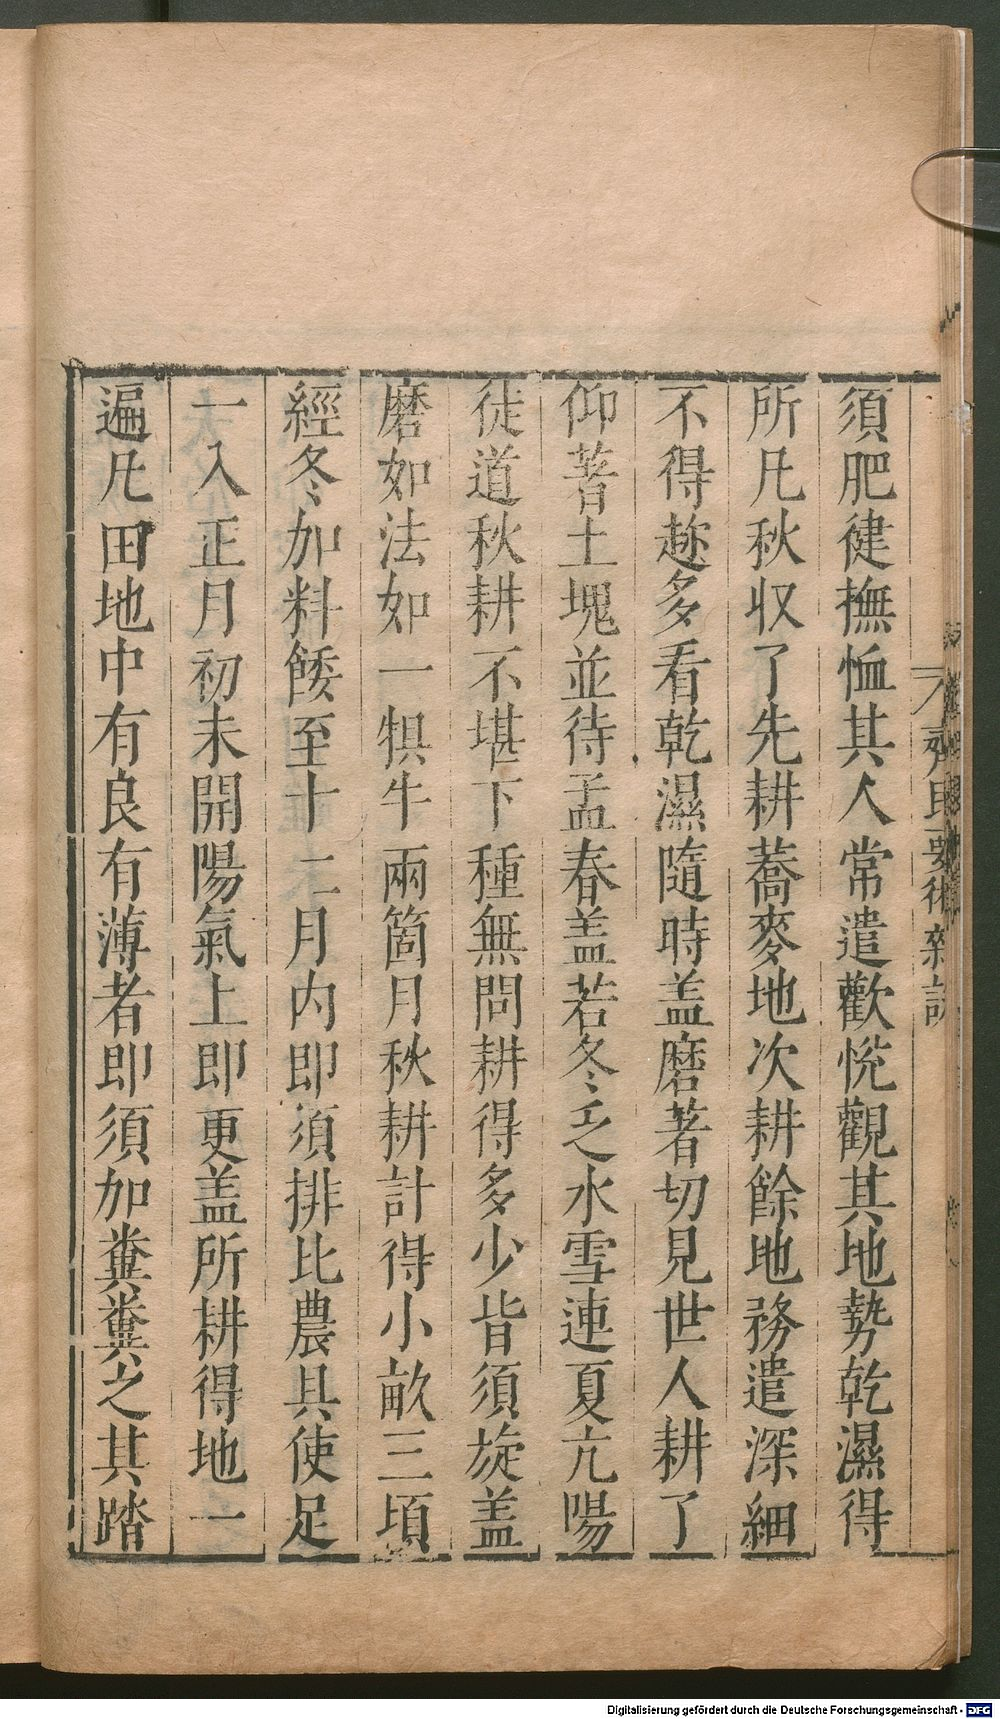 須肥健撫恤其人常遣歡悅觀其地勢乾濕得
所凡秋收了先耕蕎麥地次耕餘地務遣深細
不得趂多看乾濕隨時盖磨著切見世人耕了
仰著土塊並待孟春盖若冬乏水雪連夏亢陽
徒道秋耕不堪下種無問耕得多少皆須旋盖
磨如法如一犋牛兩箇月秋耕計得小畝三頃
經冬加料餧至十二月內即須排比農具使足
一入正月初未開陽氣上即更盖所耕得地一
遍凡田地中有良有薄者即須加糞糞之其踏
Digitalisierung gefördert durch die Deutsche Forschungsgemeinschaft - DFG